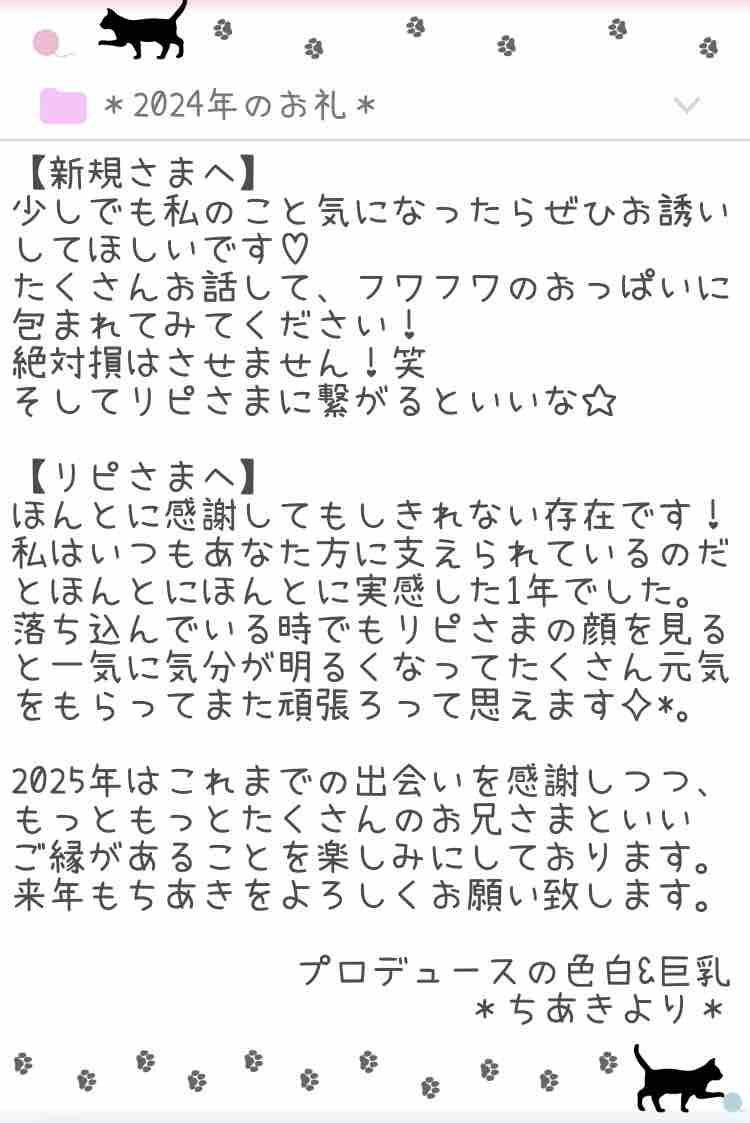 ＊2024年のお礼＊
【新規さまへ】
少しでも私のこと気になったらぜひお誘い
してほしいです♡
たくさんお話して、フワフワのおっぱいに
包まれてみてください！
絶対損はさせません！笑
そしてリピさまに繋がるといいな☆
【リピさまへ】
ほんとに感謝してもしきれない存在です！
私はいつもあなた方に支えられているのだ
とほんとにほんとに実感した1年でした。
落ち込んでいる時でもリピさまの顔を見る
と一気に気分が明るくなってたくさん元気
をもらってまた頑張ろって思えます✧*。
2025年はこれまでの出会いを感謝しつつ、
もっともっとたくさんのお兄さまといい
ご縁があることを楽しみにしております。
来年もちあきをよろしくお願い致します。
プロデュースの色白&巨乳
＊ちあきより＊